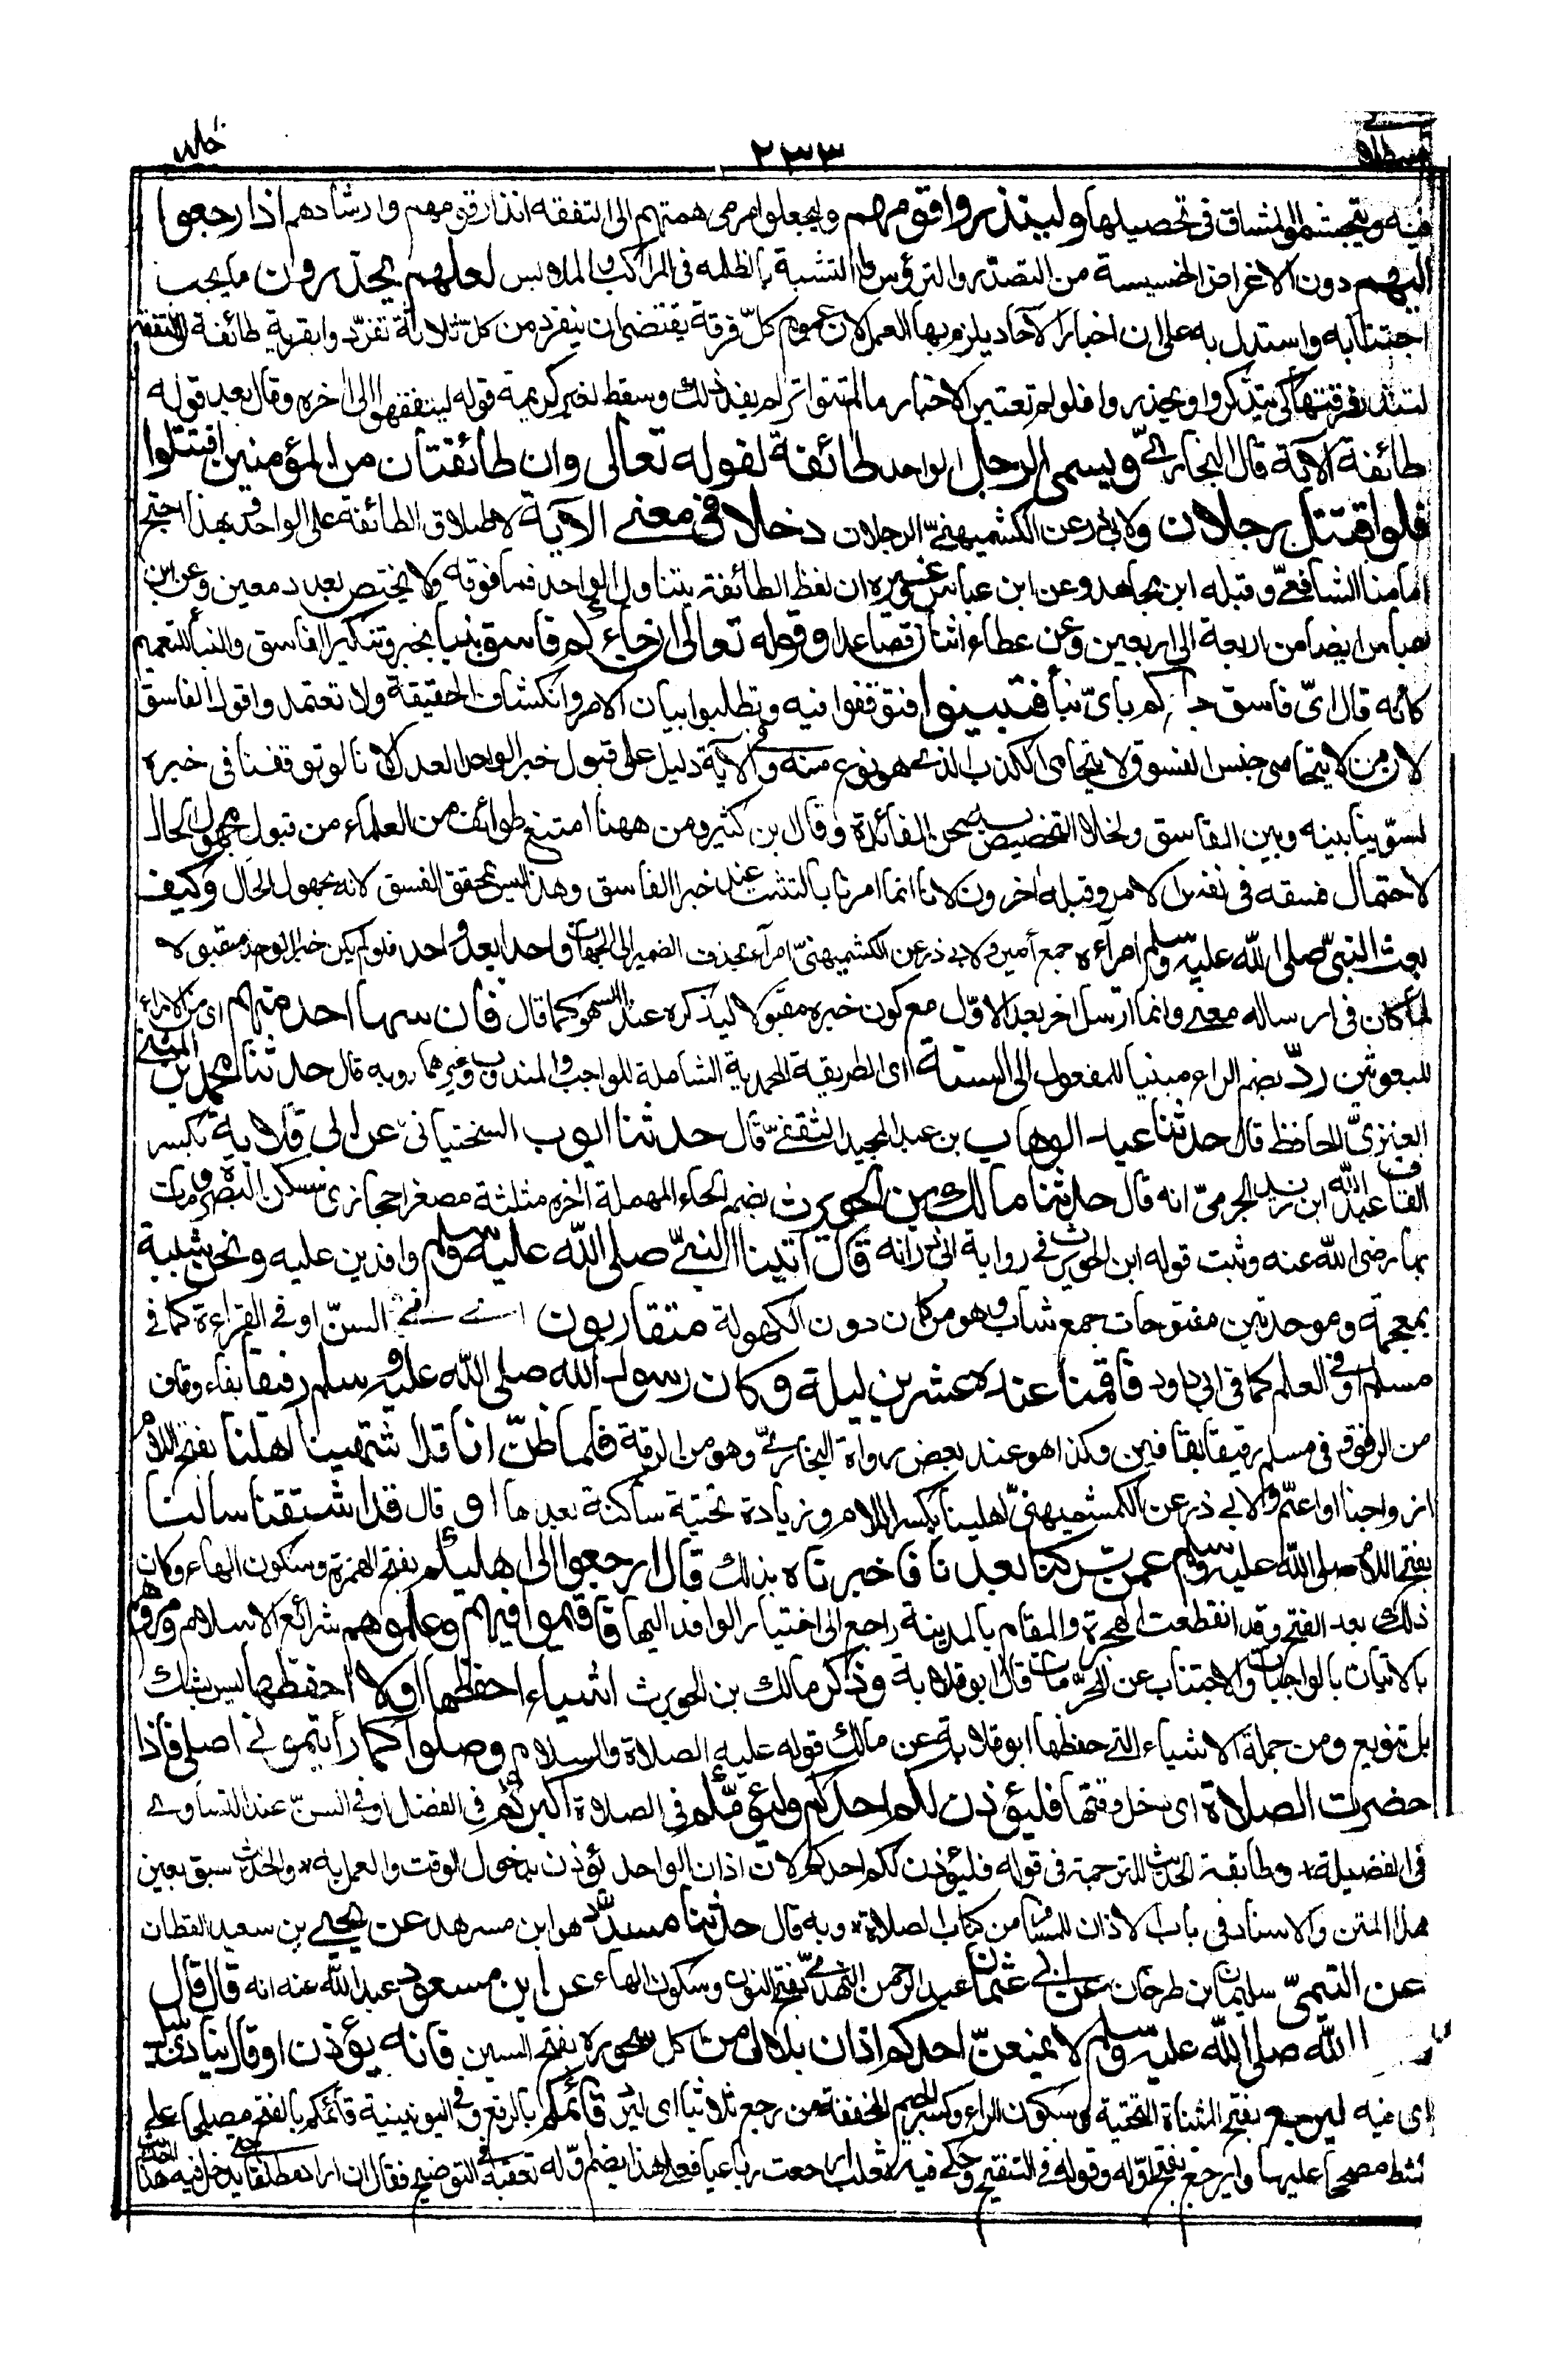 ٢٣٣
فيه ويتجشموا المشاق في تحصيلها ولينذروا قومهم وليجعلوا مرمى همتهم الى التفقه انذار قومهم وارشادهم اذا رجعوا
اليهم دون الاغراض الخسيسة من التصدّر والترؤس والتشبه بالظلمه في المراكب والملابس لعلهم يحذرون ما يجب
اجتنابه واستدل به على ان اخبار الاحاد يلزم بها العمل لان عموم كلّ فرقة يقتضى ان ينفرد من كل ثلاثة تفرّدوا بقرية طائفة الى التفقه
لتنذر فرقتها كى يتذكروا ويحذروا فلو لم تعتبر الاخبار ما لم تتواتر لم يفد ذلك وسقط لغير كريمة قوله ليتفقهوا الى اخره وقال بعد قوله
طائفة الاية قال البخاريّ ويسمى الرجل الواحد طائفة لقوله تعالى وان طائفتان من المؤمنين اقتتلوا
فلو اقتتل رجلان ولابى ذر عن الكشميهنيّ الرجلان دخلا في معنى الاية لاطلاق الطائفة على الواحد وبهذا احتج
امامنا الشافعيّ وقبله ابن مجاهد وعن ابن عباس وغيره ان لفظ الطائفة يتناول الواحد فما فوقه ولا يختص بعدد معين وعن ابن
عباس ايضا من اربعة الى اربعين وعن عطاء اثنان فصاعدا وقوله تعالى ان جاءكم فاسق بنبا بخبر وتنكير الفاسق والنبأ للتعميم
كانه قال اىّ فاسق جاءكم باىّ نبأ فتبينوا فتوقفوا فيه وتطلبوا بيان الامر وانكشاف الحقيقة ولا تعتمدوا قول الفاسق
لان من لا يتحامى جنس الفسوق لا يتحامى الكذب الذي هو نوع منه وفي الاية دليل على قبول خبر الواحد العدل لانا لو توقفنا في خبره
لسوّينا بينه وبين الفاسق ولخلا التخصيص به عن الفائدة وقال بن كثير ومن ههنا امتنع طوائف من العلماء من قبول مجهول الحال
لاحتمال فسقه في نفس الامر وقبله اخرون لانا انما امرنا بالتثبت عند خبر الفاسق وهذا ليس بمحقق الفسق لانه مجهول الحال وكيف
بعث النبيّ صلى الله عليه وسلم امراءه جمع أمير ولابى ذر عن الكشميهنيّ امراء بحذف الضمير الى الجهات واحدا بعد واحد فلو لم يكن خبر الواحد مقبولا
لما كان في ارساله معنى وانما ارسل اخر بعد الاوّل مع كون خبره مقبولا ليذكره عند السهو كما قال فان سها احد منهم اى من الامراء
المبعوثين ردّ بضم الراء مبنيا للمفعول الى السنة اى الطريقة المحمدية الشاملة للواجب والمندوب وغيرهما وبه قال حدثنا محمد بن المثنى
العنزيّ الحافظ قال حدثنا عبد الوهاب بن عبد المجيد الثقفيّ قال حدثنا ايوب السختيانىّ عن ابى قلابة بكسر
القاف عبد الله ابن زيد الجرميّ انه قال حدثنا مالك بن الحويرث بضم الحاء المهملة اخره مثلثة مصغرا حجازى سكن البصرة ومات
بها رضى الله عنه وثبت قوله ابن الحويرث في رواية ابى ذر انه قال اتينا النبيّ صلى الله عليه وسلم وافدين عليه ونحن شببة
بمعجمة وموحدتين مفتوحات جمع شاب وهو من كان دون الكهولة متقاربون اى في السنّ او في القراءة كما في
مسلم او في العلم كما في ابى داود فاقمنا عنده عشرين ليلة وكان رسول الله صلى الله عليه وسلم رفيقا بفاء وقاف
من الرفق وفي مسلم رقيقا بقافين وكذا هو عند بعض رواة البخاريّ وهو من الرقة فلما ظنّ انا قد اشتهينا اهلنا بفتح اللام
ازواجنا او اعمّ ولابي ذر عن الكشميهنيّ اهلينا بكسر اللام وزيادة تحتية ساكنة بعدها او قال قد اشتقنا سالنا
بفتح اللام صلى الله عليه وسلم عمن تركنا بعدنا فاخبرناه بذلك قال ارجعوا الى اهليكم بفتح الهمزة وسكون الهاء وكان
ذلك بعد الفتح وقد انقطعت الهجرة والمقام بالمدينة راجع الى اختيار الوافد اليها فاقيموا فيهم وعلموهم شرائع الاسلام ومروهم
بالاتيان بالواجبات والاجتناب عن المحرّمات قال ابو قلابة وذكر مالك بن الحويرث اشياء احفظها اولا احفظها ليس بشك
بل تنويع ومن جملة الاشياء التي حفظها ابو قلابة عن مالك قوله عليه الصلاة والسلام وصلوا كما رأيتموني اصلى فاذا
حضرت الصلاة اى دخل وقتها فليؤذن لكم احدكم وليؤمّكم في الصلاة اكبركم في الفضل او في السنّ عند التساوى
في الفضيلة ومطابقة الحديث للترجمة في قوله فليؤذن لكم احدكم لان اذان الواحد يؤذن بدخول الوقت والعمل به والحديث سبق بعين
هذا المتن والاسناد في باب الاذان للمسافر من كتاب الصلاة وبه قال حدثنا مسدّد هو ابن مسرهد عن يحيى بن سعيد القطان
عن التيميّ سليمان بن طرخان عن ابى عثمان عبد الرحمن النهدىّ بفتح النون وسكون الهاء عن ابن مسعود عبد الله عنه انه قال قال
الله صلى الله عليه وسلم لا يمنعنّ احدكم اذان بلال من اكل سحوره بفتح السين فانه يؤذن او قال ينادى بليل
اى فيه ليرجع بفتح المثناة التحتية وسكون الراء وكسر الجيم المخففة من رجع ثلاثيا اى ليردّ قائمكم بالرفع وفي اليونينية قائمكم بالفتح مصلحا على
كشط مصححا عليها وايرجع بفتح اوّله وقوله في التنقيح وحكى فيه ثعلب ارجعت رباعيا فعلى هذا يضم اوّله تعقبه في التوضيح فقال ان اراد مطلقا يدخل فيه هذا الحديث